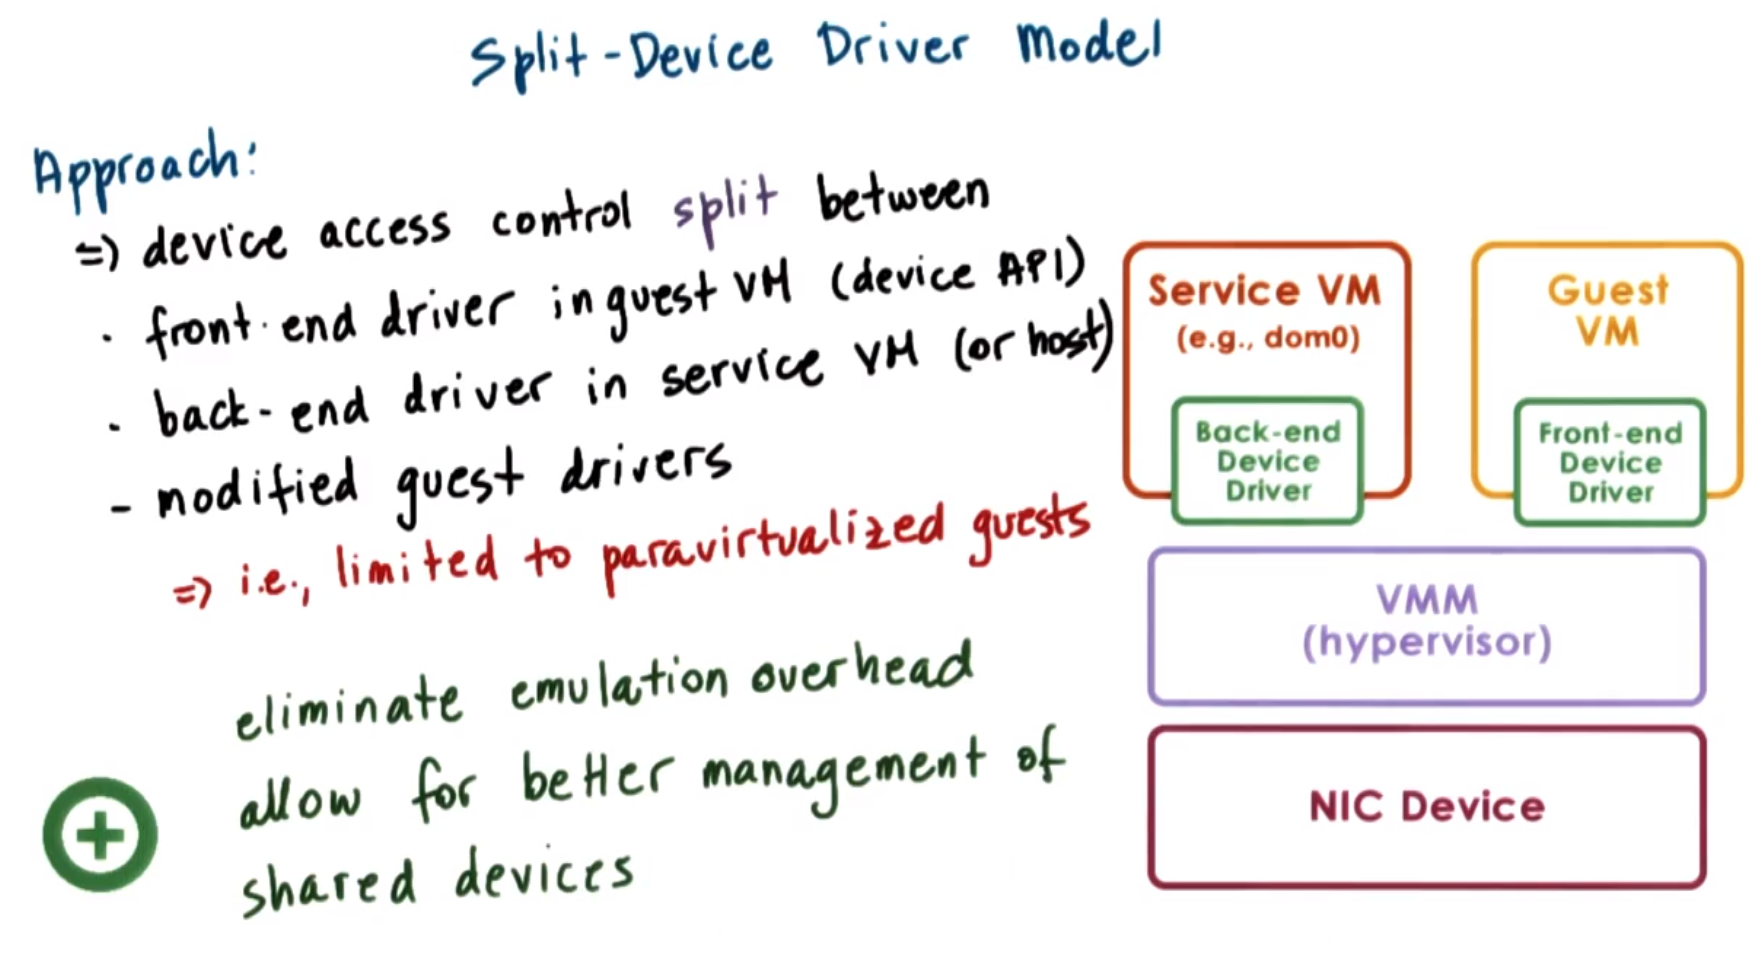 Split-Device Driver Model
Approach:
=> device access control split between
· front-end driver in guest VM (device API)
· back-end driver in service VM (or host)
- modified guest drivers
=> i.e., limited to paravirtualized guests
eliminate emulation overhead
allow for better management of
shared devices
Service VM
(e.g., dom0)
Back-end
Device
Driver
Guest
VM
Front-end
Device
Driver
VMM
(hypervisor)
NIC Device